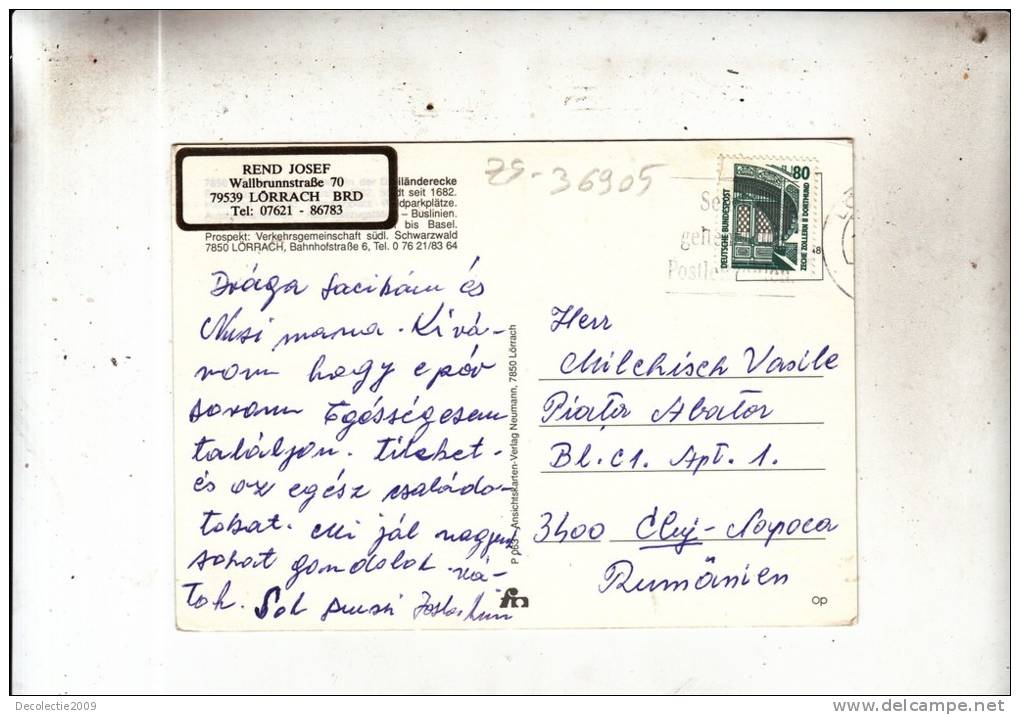 REND JOSEF
Wallbrunnstraße 70
79539 LÖRRACH BRD
Tel: 07621 - 86783
iländerecke
dt seit 1682.
dparkplätze.
– Buslinien.
bis Basel.
Prospekt: Verkehrsgemeinschaft südl. Schwarzwald
7850 LÖRRACH, Bahnhofstraße 6, Tel. 0 76 21/83 64
ZS-36905
80
DEUTSCHE BUNDESPOST
ZECHE ZOLLERN II DORTMUND
Drága Lacikám és
Nusi mama. Kívá-
nom hogy e pár
sorom Egésségesen
találjon. Titeket.
és az egész családo-
tokat. Mi jól nagyon
sokat gondolok rá-
tok. Sok puszi
P 063 Ansichtskarten-Verlag Neumann, 7850 Lörrach
Herr
Milchisch Vasile
Piața Abator
Bl. C1. Apt. 1.
3400 Cluj-Napoca
Rumänien
op
Decolectie2009
www.delcampe.net